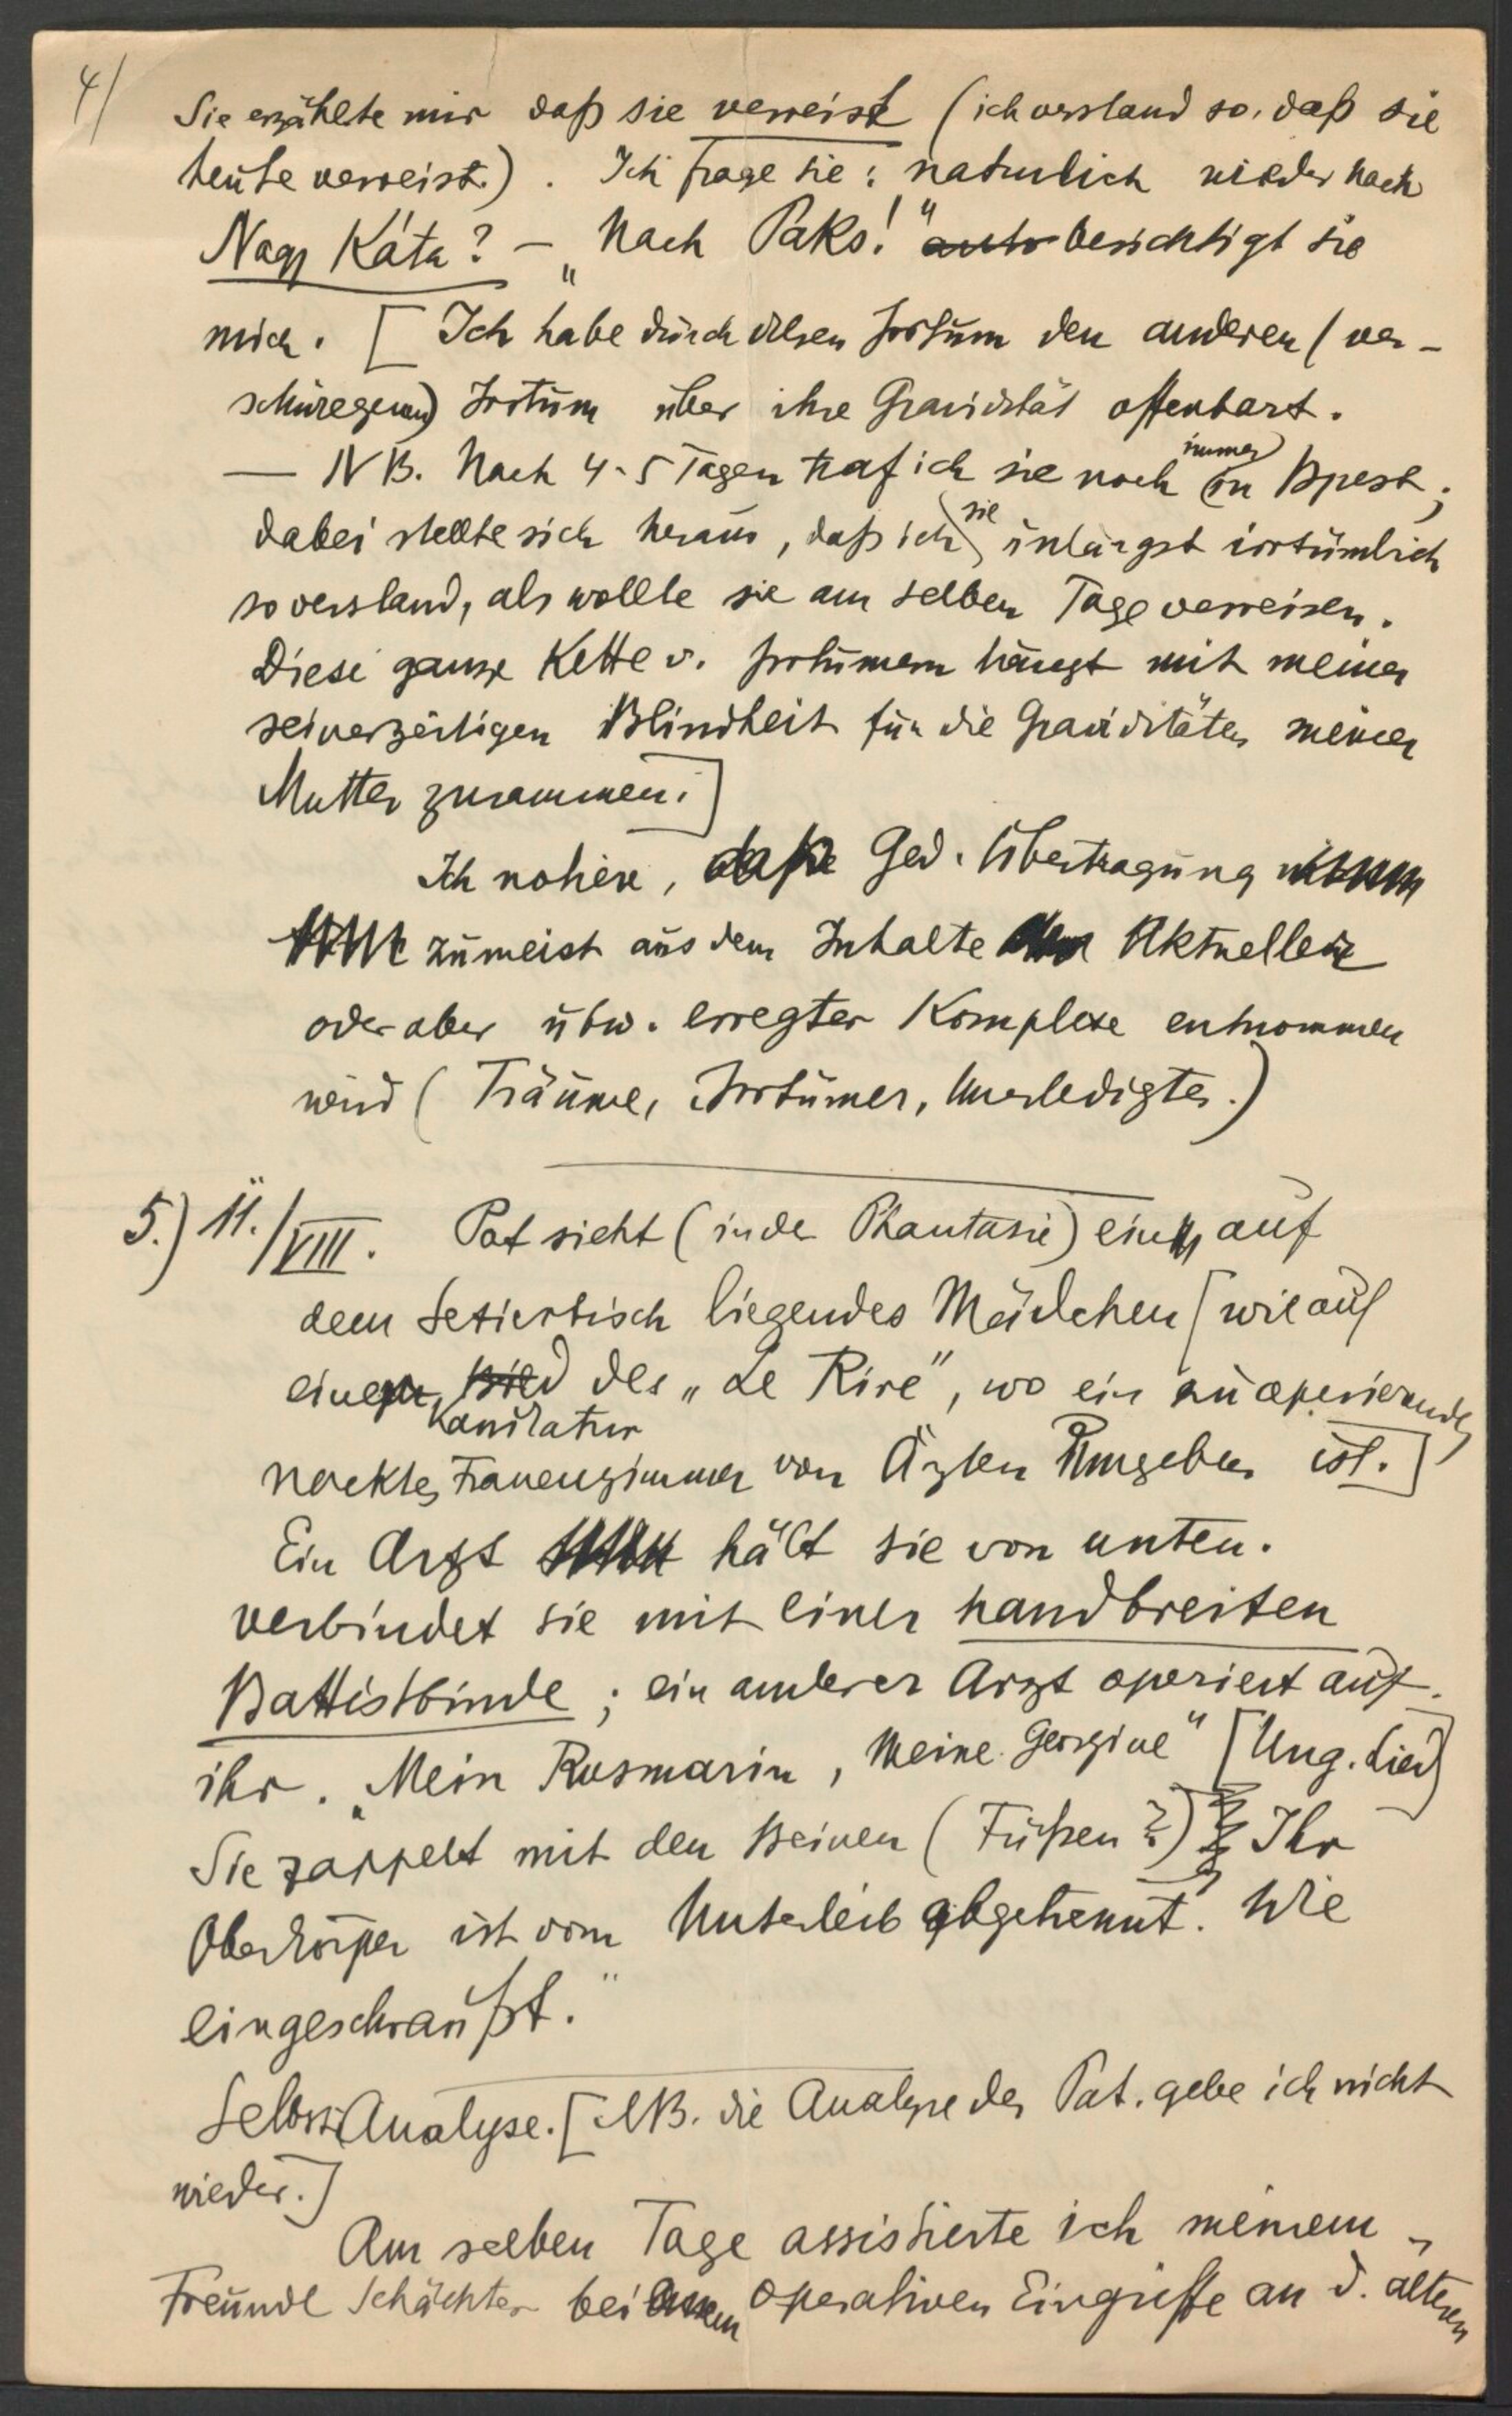 4/
Sie erzählte mir daß sie verreist (ich verstand so, daß sie
heute verreist.). Ich frage sie: natürlich wieder nach
Nagy Káta? – „Nach Paks!“ berichtigt sie
mich. [Ich habe durch diesen Irrtum den anderen (ver-
Irrtum über ihre Gravidität offenbart.
— NB. Nach 4-5 Tagen traf ich sie noch immer in Bpest;
dabei stellte sich heraus, daß ich sie unlängst irrtümlich
so verstand, als wollte sie am selben Tage verreisen.
Diese ganze Kette v. Irrtümern hängt mit meiner
seinerzeitigen Blindheit für die Graviditäten meiner
Mutter zusammen.]
Ich notiere, daß Ged. Übertragung
zumeist aus dem Inhalte Aktueller
oder aber ubw. erregter Komplexe entnommen
wird (Träume, Irrtümer, Unerledigtes.)
5.) 11./VIII. Pat sieht (in der Phantasie) ein auf
dem Seziertisch liegendes Mädchen [wie auf
einer Bild Karikatur des „Le Rire“, wo ein zu operierendes
nacktes Frauenzimmer von Ärzten umgeben ist.]
Ein Arzt hält sie von unten.
verbindet sie mit einer handbreiten
Battistbinde; ein anderer Arzt operiert auf
ihr. „Mein Rosmarin, meine Georgine“ [Ung. Lied]
Sie zappelt mit den Beinen (Füßen?) Ihr
Oberkörper ist vom Unterleib abgetrennt. Wie
eingeschraubt.“
Selbst Analyse. [NB. die Analyse des Pat. gebe ich nicht
wieder.]
Am selben Tage assistierte ich meinem
Freunde Schächter bei einem operativen Eingriffe an d. älteren